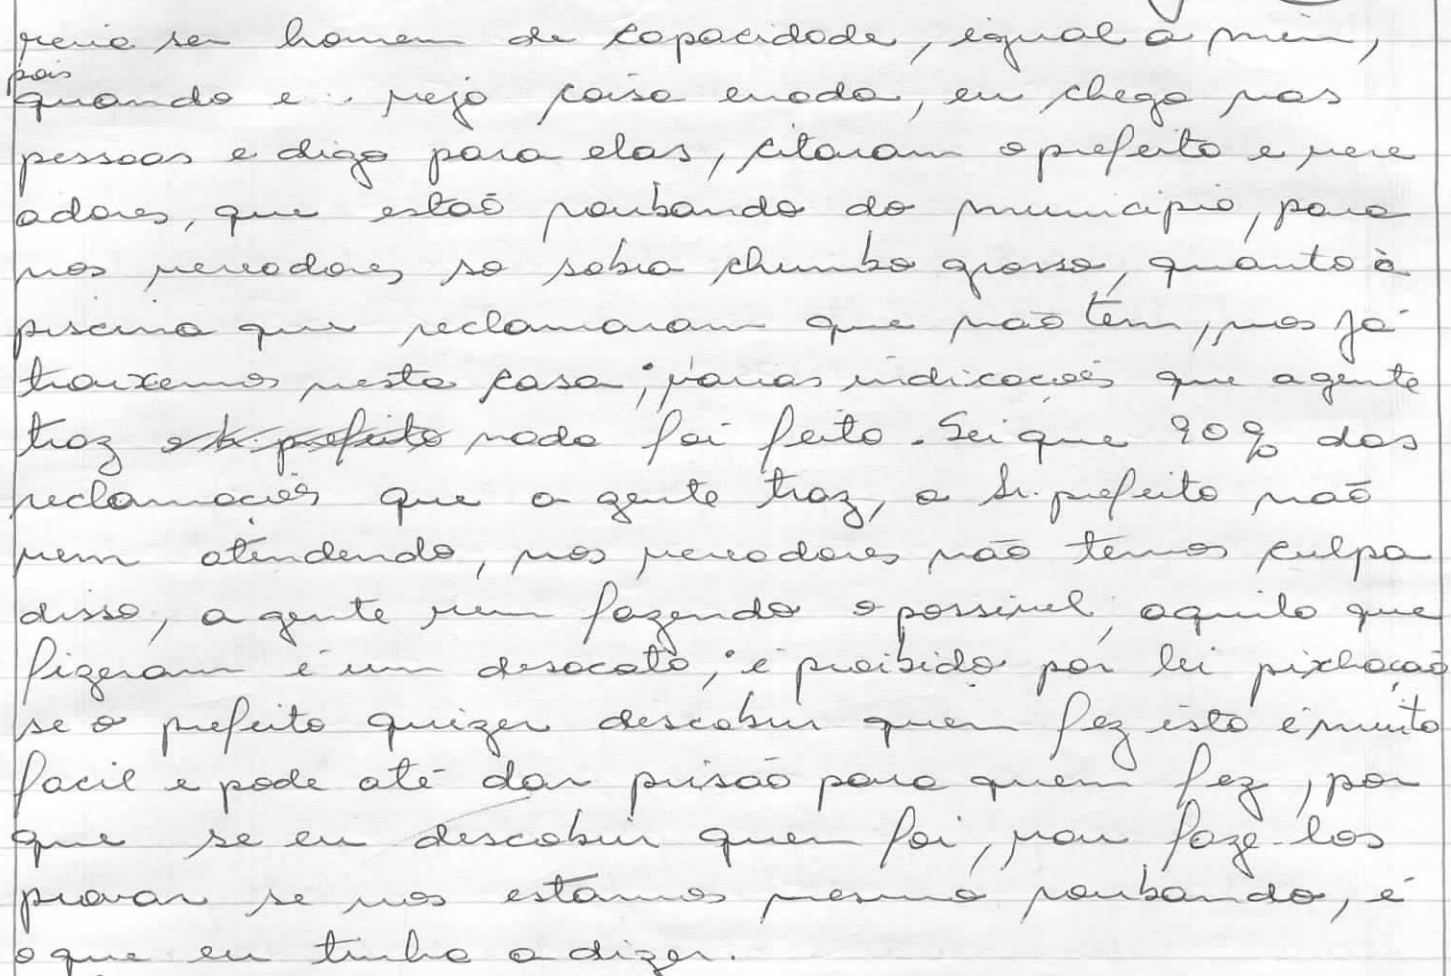 veria ser homem de capacidade, igual a mim,
pois
quando e vejo coisa errada, eu chego nas
pessoas e digo para elas, citaram o prefeito e vere
adores, que estaõ roubando do municipio, para
nos vereadores so sobra chumbo grosso, quanto à
piscina que reclamaram que não tem, nos já
trouxemos nesta casa, varias indicacões que a gente
traz nada foi feito. Sei que 90% das
reclamacões que a gente traz, o Sr. prefeito não
vem atendendo, nos vereadores não temos culpa
disso, a gente vem fazendo o possivel, aquilo que
fizeram é um desacato, é proibido por lei pixhação
se o prefeito quizer descobrir quem fez isto é muito
facil e pode até dar prisão para quem fez, por
que se eu descobrir quem foi, vou faze-los
provar se nos estamos mesmo roubando, é
o que eu tinha a dizer.